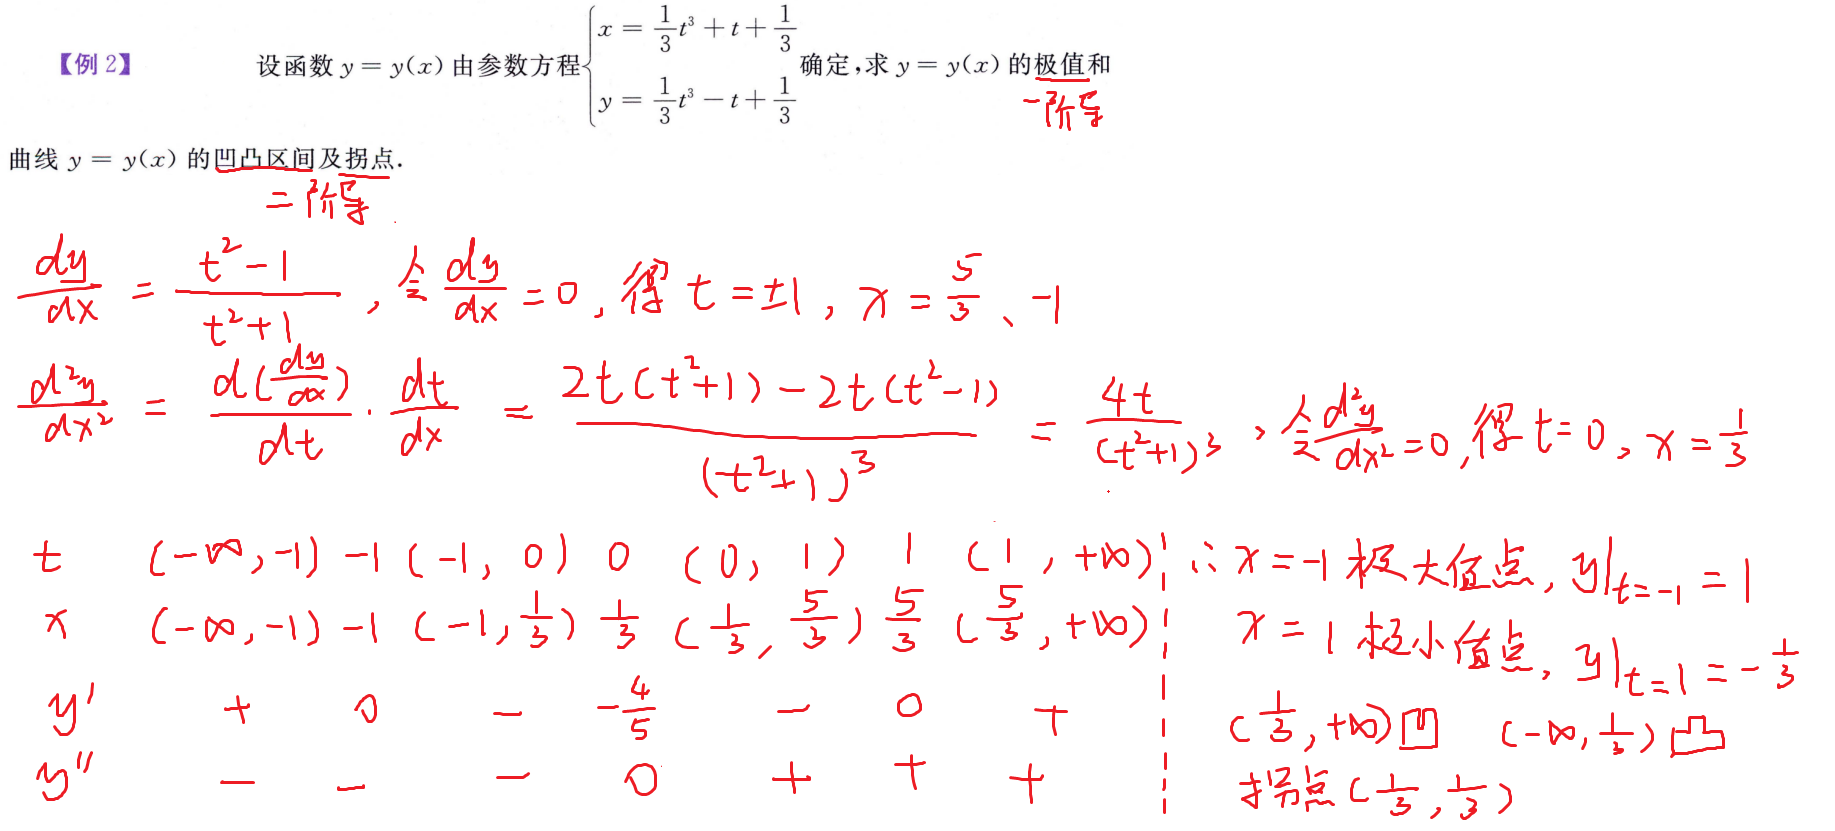 【例 2】 设函数 y = y(x) 由参数方程 { x = 1/3 t³ + t + 1/3, y = 1/3 t³ − t + 1/3 确定,求 y = y(x) 的极值和
一阶导
曲线 y = y(x) 的凹凸区间及拐点.
二阶导
dy/dx = (t²−1)/(t²+1) , 令 dy/dx = 0, 得 t = ±1, x = 5/3、−1
d²y/dx² = d(dy/dx)/dt · dt/dx = (2t(t²+1) − 2t(t²−1))/(t²+1)³ = 4t/(t²+1)³ , 令 d²y/dx² = 0, 得 t = 0, x = 1/3
t (−∞, −1) −1 (−1, 0) 0 (0, 1) 1 (1, +∞)
x (−∞, −1) −1 (−1, 1/3) 1/3 (1/3, 5/3) 5/3 (5/3, +∞)
y′ + 0 − −4/5 − 0 +
y″ − − − 0 + + +
∴ x = −1 极大值点, y|t=−1 = 1
x = 1 极小值点, y|t=1 = −1/3
(1/3, +∞) 凹 (−∞, 1/3) 凸
拐点 (1/3, 1/3)